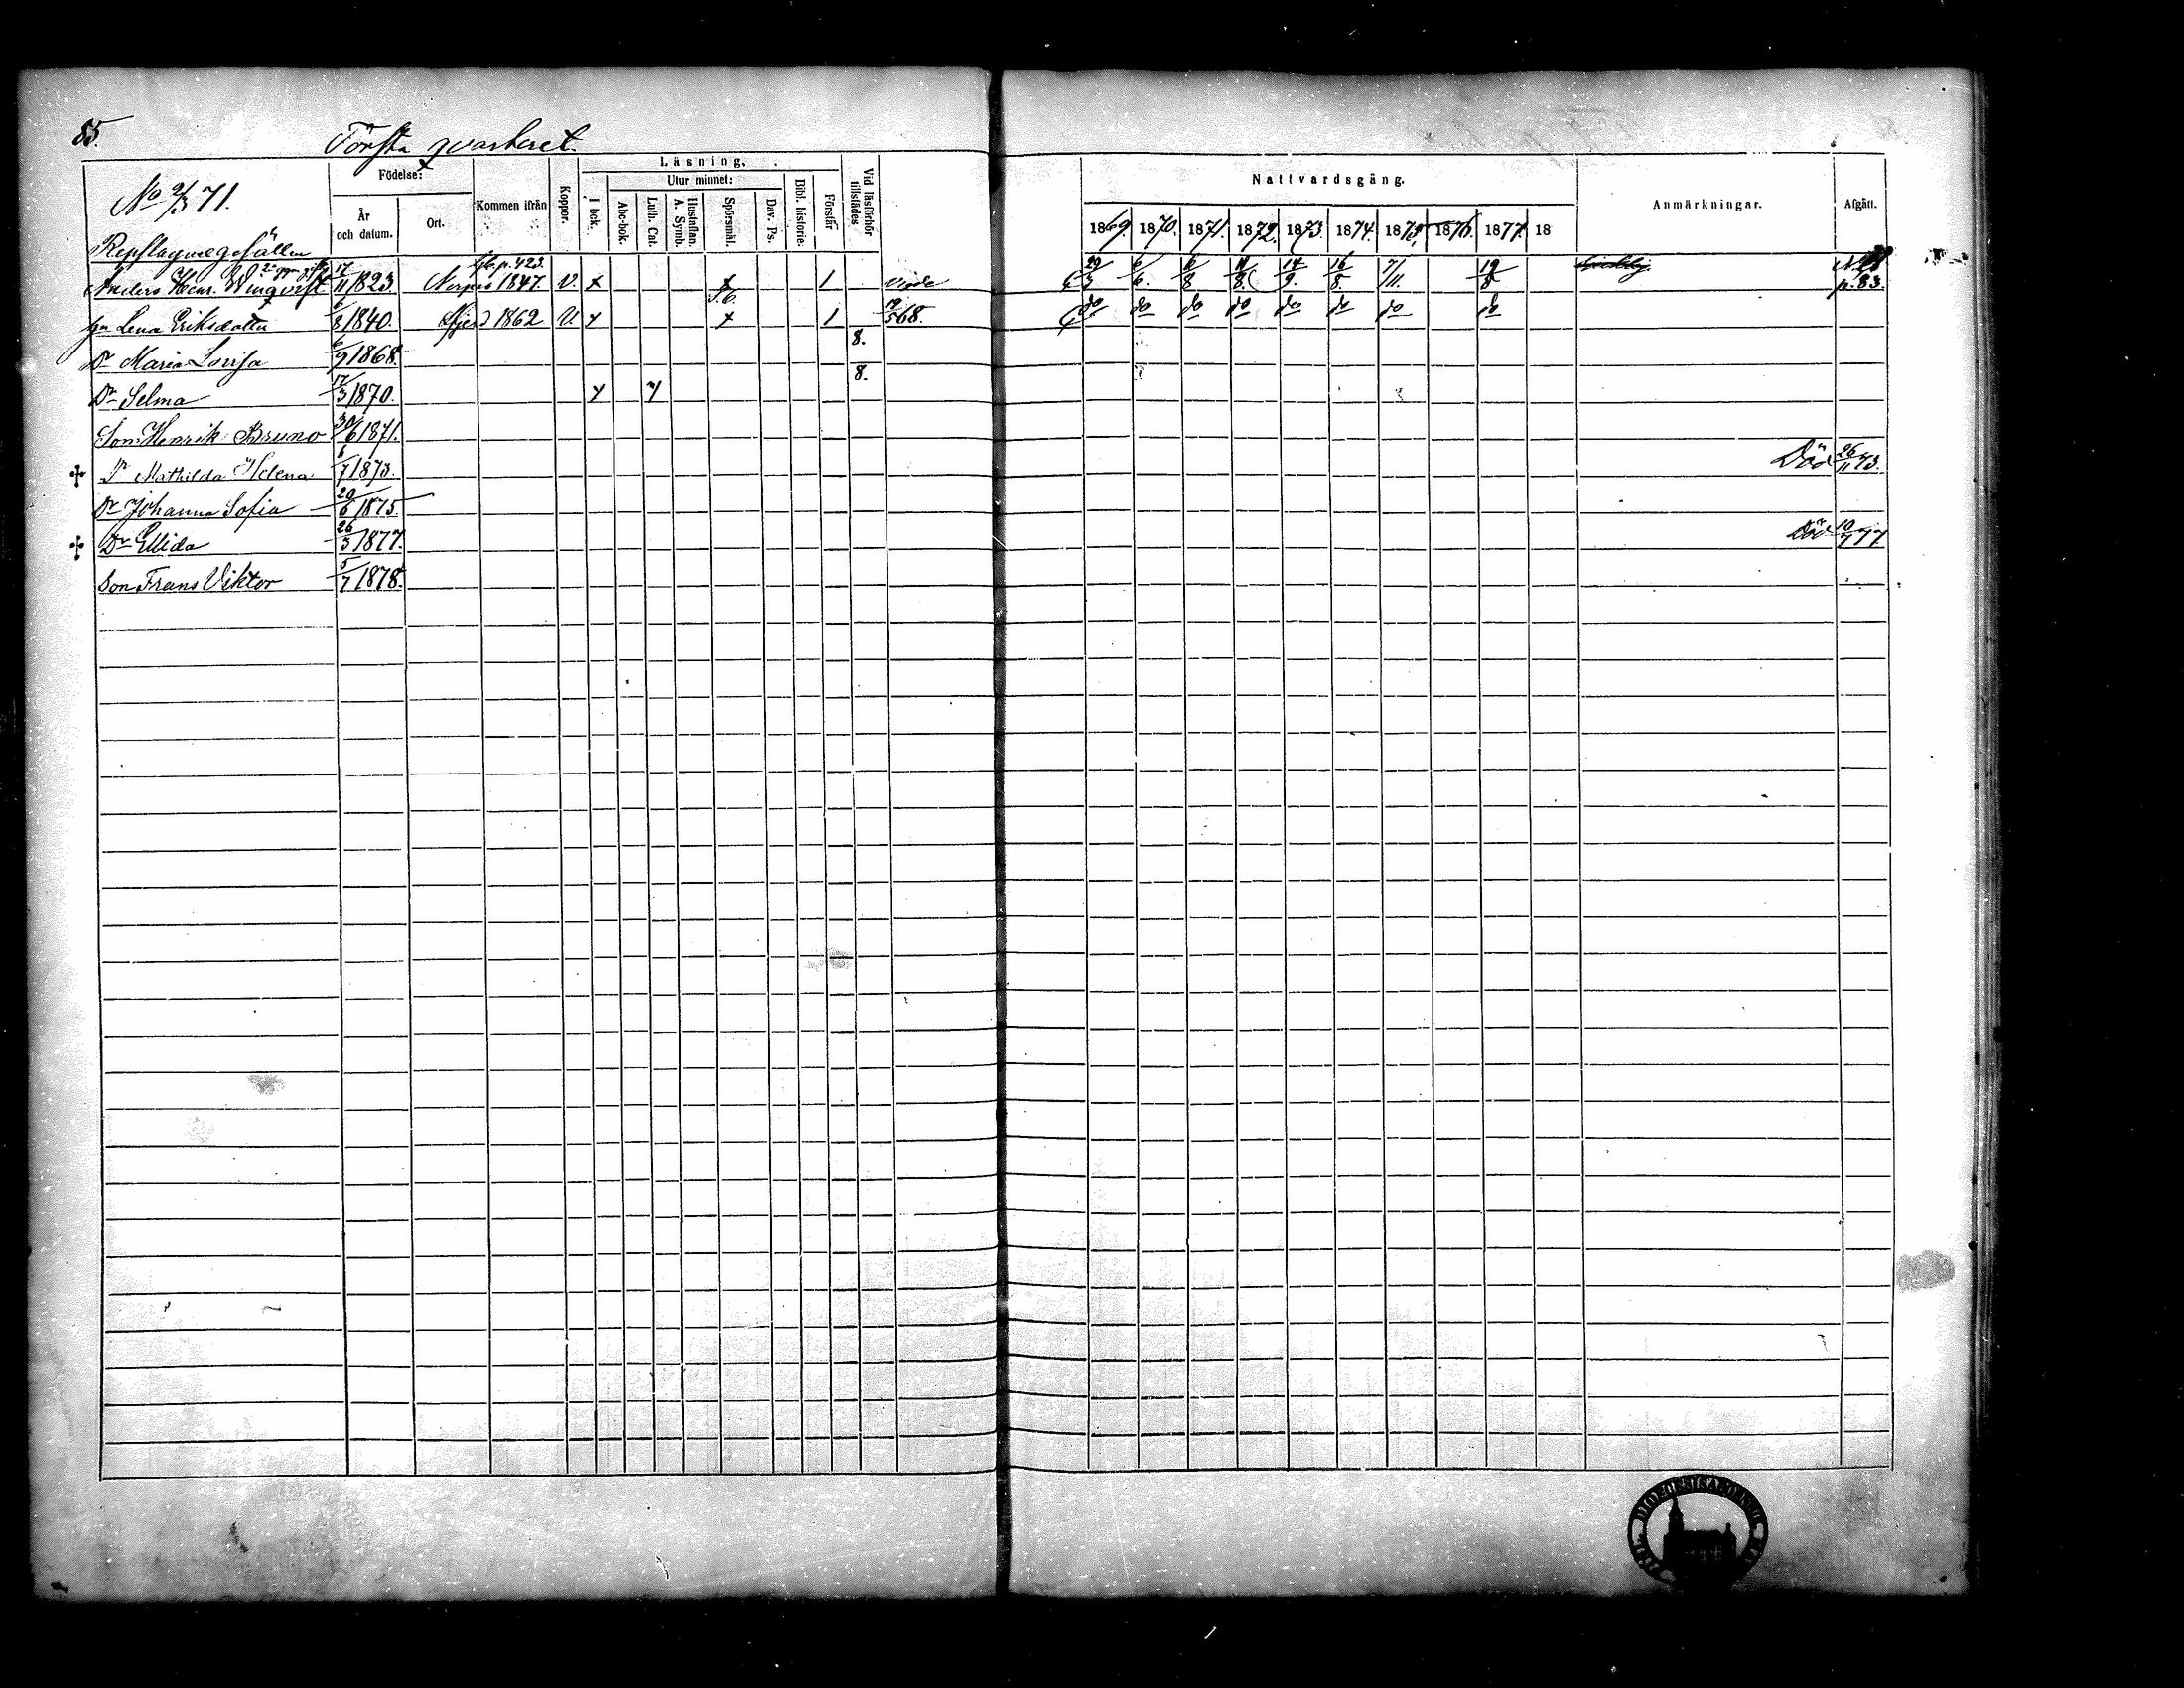 85.
Första qvarteret.
No 2/3 71.
Födelse:
År och datum.
Ort.
Kommen ifrån
Koppor.
Läsning.
I bok.
Utur minnet:
Abc-bok.
Luth. Cat.
Hustaflan. A. Symb.
Spörsmål.
Dav. Ps.
Bibl. historie:
Förstår
Vid läsförhör tillstädes
Nattvardsgång.
1869. 1870. 1871. 1872. 1873. 1874. 1875. 1876. 1877. 18
Anmärkningar.
Afgått.
Repslagaregesällen
Anders Henr. Winqvist 17/11 1823 Nerpes 1847. p. 423. V. x x 1 20/3 6/6. 8 8 14/9. 16/8. 7/11. 19/8 p. 83.
Lena Eriksdotter 6/8 1840. 1862 V. x S.b. x 1 19/5 68. do do do do do do do do
Dr Maria Lovisa 6/9 1868. 8.
Dr Selma 17/3 1870. x 8.
Son Henrik Bruno 30/6 1871.
Dr Mathilda Helena 6/7 1873. Död 26/11 73.
Dr Johanna Sofia 20/6 1875.
Dr Ellida 26/3 1877. Död 10/7 77.
Son Frans Viktor 5/7 1878.